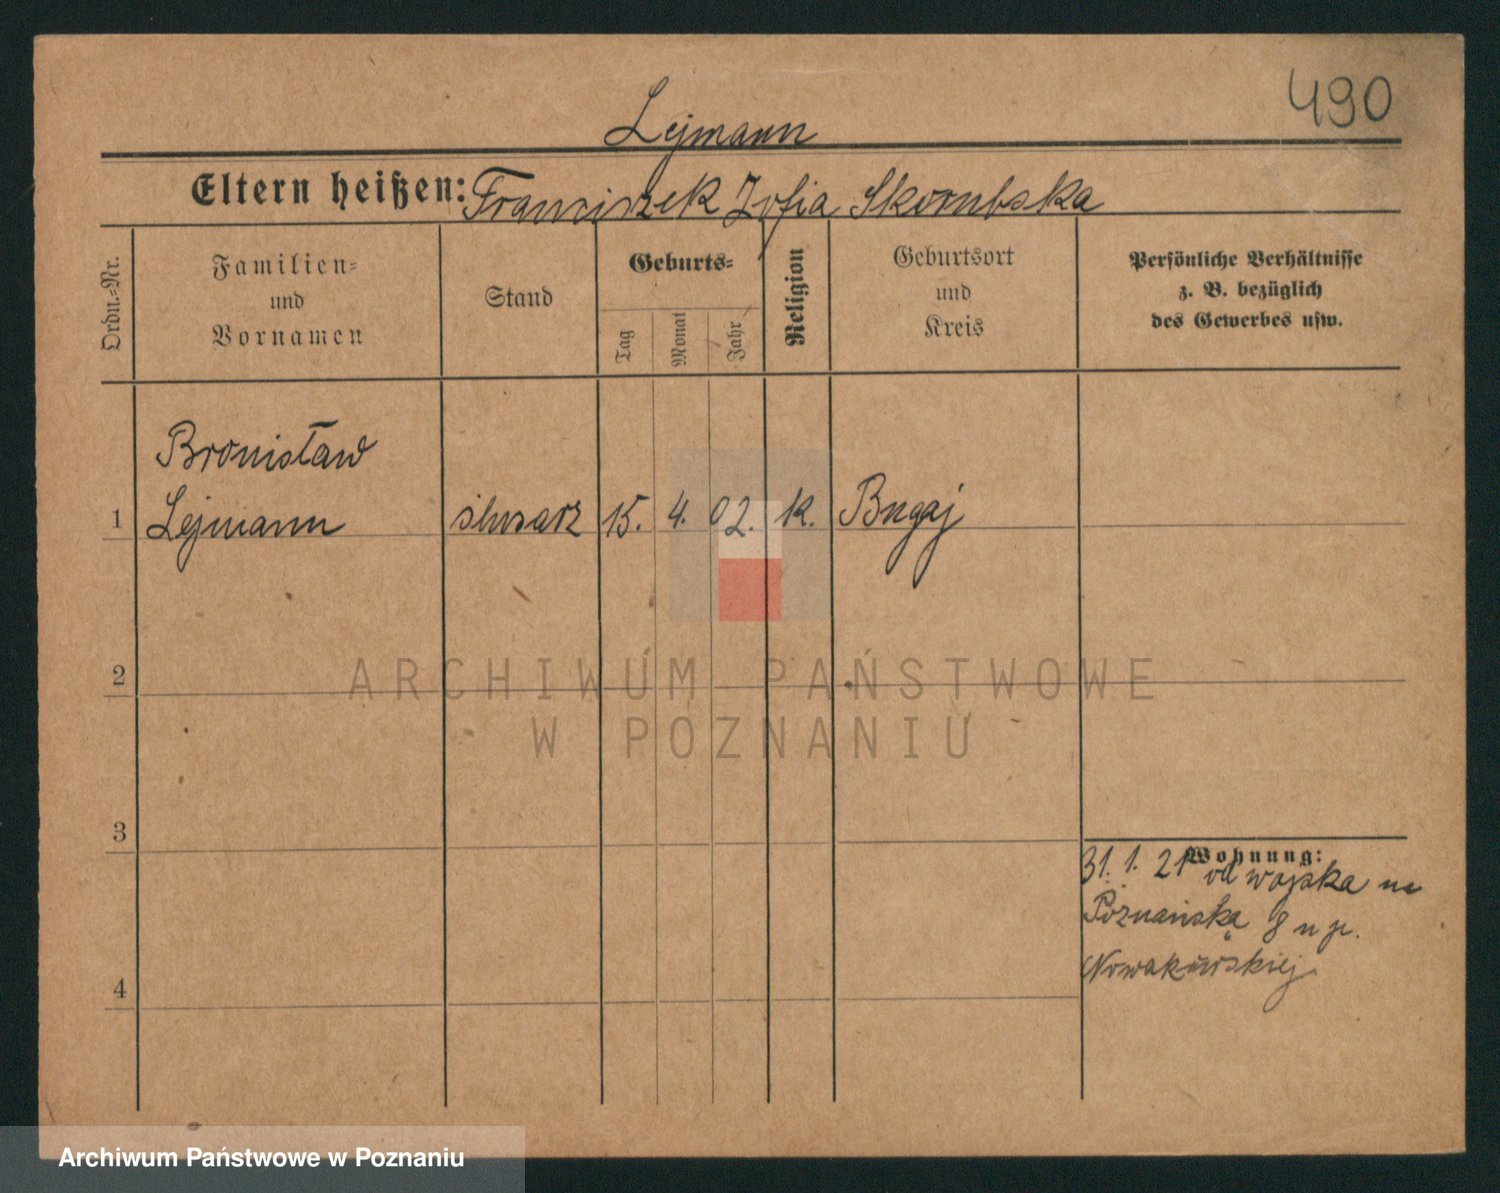 490
Lejmann
Eltern heißen: Franciszek Zofia Skorubska
Ordn.=Nr.
Familien=
und
Vornamen
Stand
Geburts=
Tag
Monat
Jahr
Religion
Geburtsort
und
Kreis
Persönliche Verhältnisse
z. B. bezüglich
des Gewerbes usw.
Bronisław
1 Lejmann ślusarz 15. 4. 02. k. Bugaj
2
3
Wohnung:
31. 1. 21 od wojska na
Poznańską 8 u p.
Nowakowskiej
4
ARCHIWUM PAŃSTWOWE
W POZNANIU
Archiwum Państwowe w Poznaniu